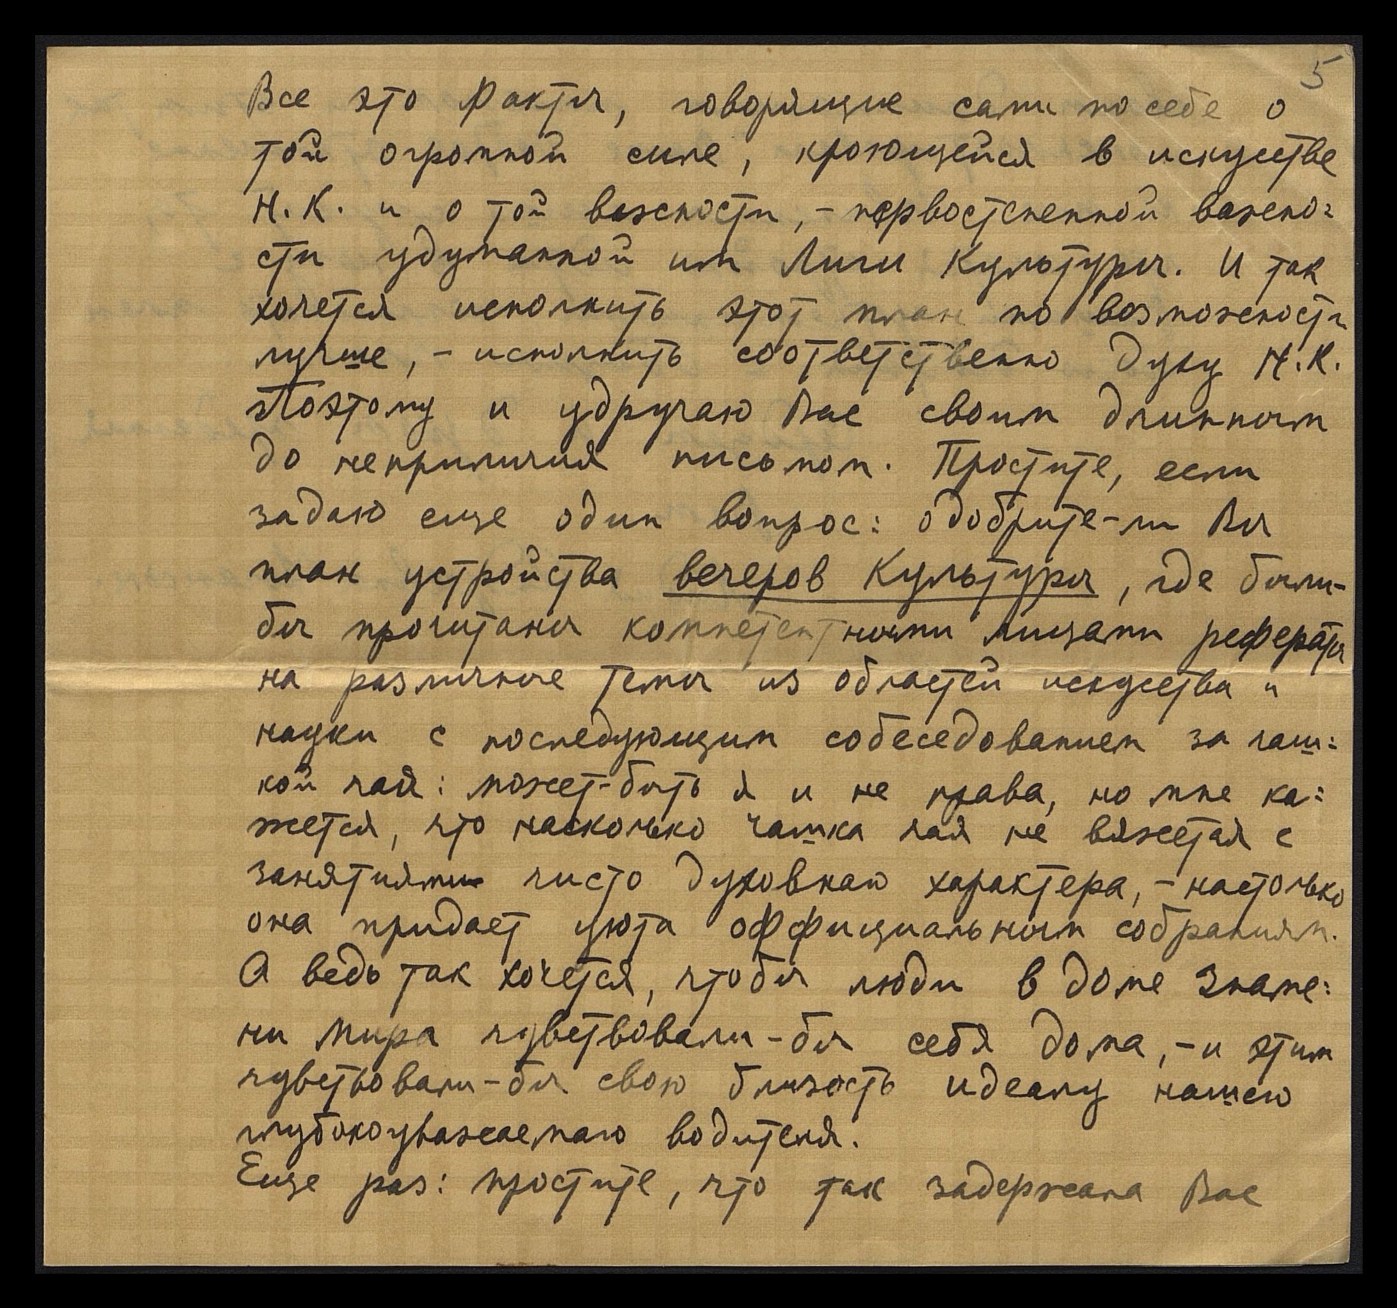 5
Все это факты, говорящие сами по себе о
той огромной силе, кроющейся в искусстве
Н.К. и о той важности, – первостепенной важно=
сти удуманной им Лиги Культуры. И так
хочется исполнить этот план по возможности
лучше, – исполнить соответственно духу Н.К.
Поэтому и удручаю Вас своим длинным
до неприличия письмом. Простите, если
задаю еще один вопрос: одобрите-ли Вы
план устройства вечеров Культуры, где были-
бы прочитаны компетентными лицами рефераты
на различные темы из областей искусства и
науки с последующим собеседованием за чаш=
кой чая: может-быть я и не права, но мне ка=
жется, что насколько чашка чая не вяжется с
занятиями чисто духовнаго характера, – настолько
она придает уюта оффициальным собраниям.
А ведь так хочется, чтобы люди в доме Знаме=
ни Мира чувствовали-бы себя дома, – и этим
чувствовали-бы свою близость идеалу нашего
глубокоуважаемаго водителя.
Еще раз: простите, что так задержала Вас